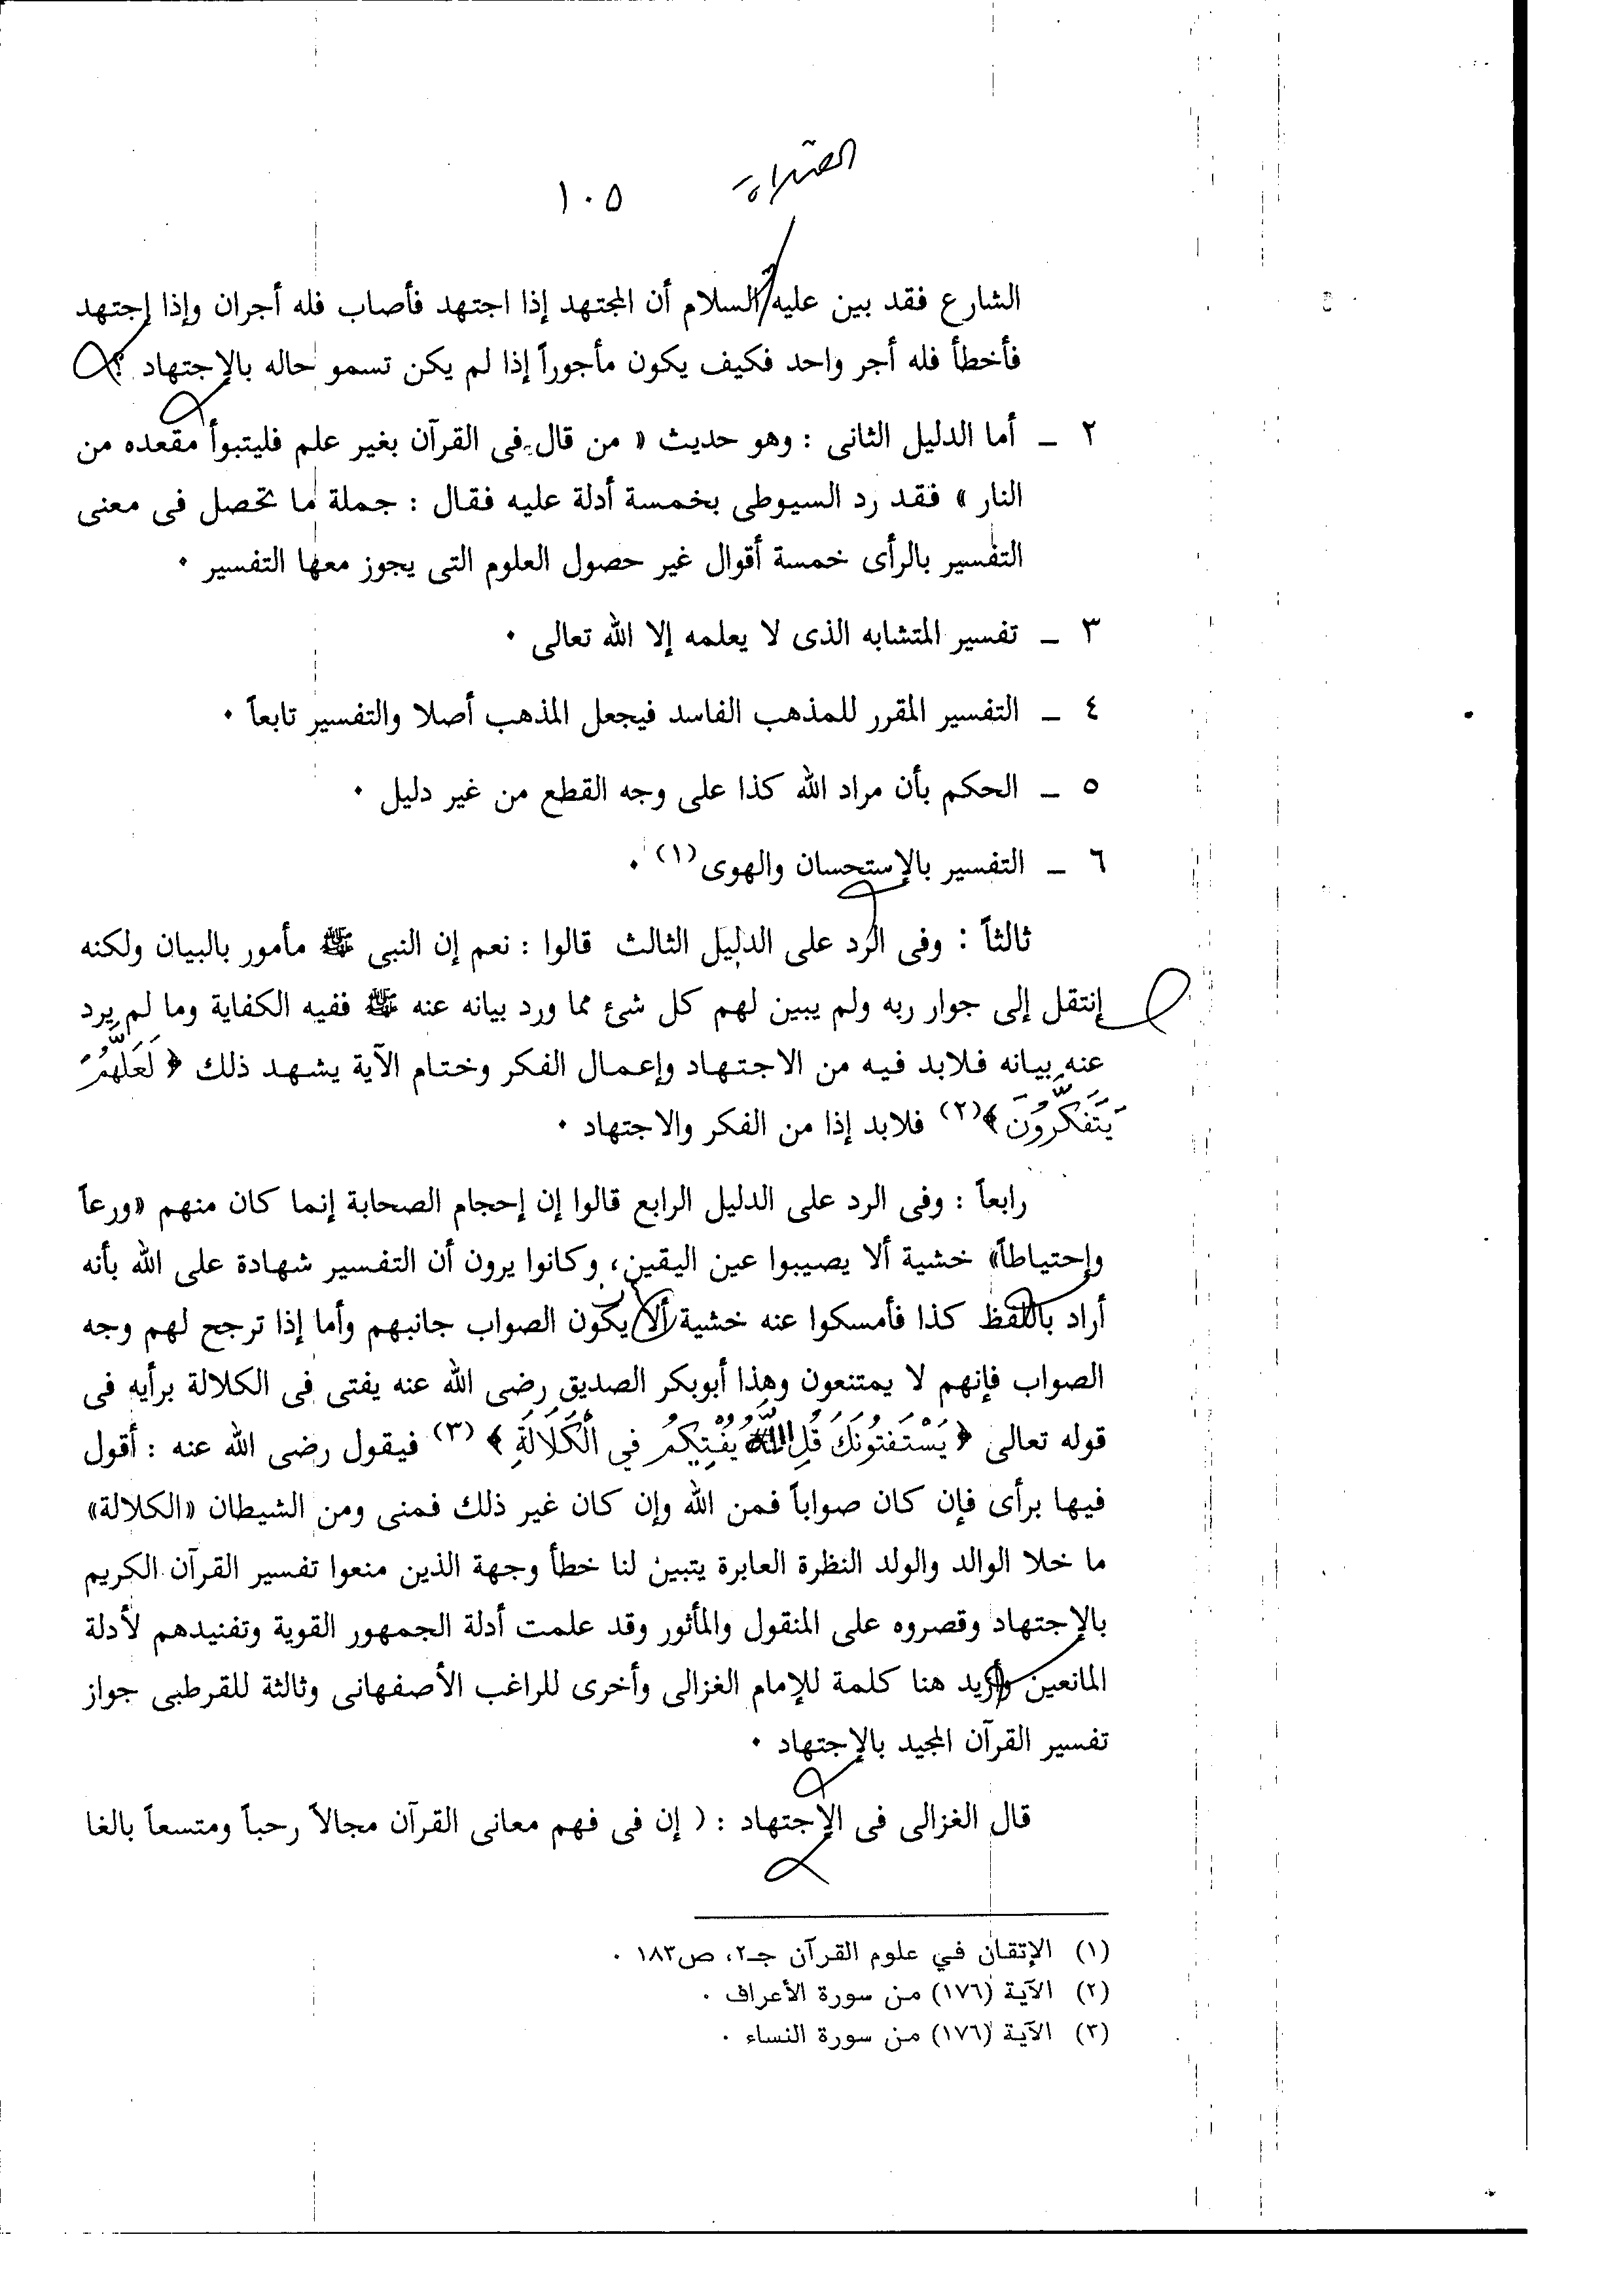 الصلاة
١٠٥
الشارع فقد بين عليه السلام أن المجتهد إذا اجتهد فأصاب فله أجران وإذا إجتهد
فأخطأ فله أجر واحد فكيف يكون مأجوراً إذا لم يكن تسمو حاله بالإجتهاد ؟
٢ ـ أما الدليل الثانى : وهو حديث « من قال فى القرآن بغير علم فليتبوأ مقعده من
النار » فقد رد السيوطى بخمسة أدلة عليه فقال : جملة ما تحصل فى معنى
التفسير بالرأى خمسة أقوال غير حصول العلوم التى يجوز معها التفسير .
٣ ـ تفسير المتشابه الذى لا يعلمه إلا الله تعالى .
٤ ـ التفسير المقرر للمذهب الفاسد فيجعل المذهب أصلا والتفسير تابعاً .
٥ ـ الحكم بأن مراد الله كذا على وجه القطع من غير دليل .
٦ ـ التفسير بالإستحسان والهوى(١) .
ثالثاً : وفى الرد على الدليل الثالث قالوا : نعم إن النبى ﷺ مأمور بالبيان ولكنه
إنتقل إلى جوار ربه ولم يبين لهم كل شئ مما ورد بيانه عنه ﷺ ففيه الكفاية وما لم يرد
عنه بيانه فلابد فيه من الاجتهاد وإعمال الفكر وختام الآية يشهد ذلك ﴿ لَعَلَّهُمْ
يَتَفَكَّرُونَ ﴾(٢) فلابد إذا من الفكر والاجتهاد .
رابعاً : وفى الرد على الدليل الرابع قالوا إن إحجام الصحابة إنما كان منهم «ورعاً
وإحتياطاً» خشية ألا يصيبوا عين اليقين، وكانوا يرون أن التفسير شهادة على الله بأنه
أراد باللفظ كذا فأمسكوا عنه خشية ألا يكون الصواب جانبهم وأما إذا ترجح لهم وجه
الصواب فإنهم لا يمتنعون وهذا أبوبكر الصديق رضى الله عنه يفتى فى الكلالة برأيه فى
قوله تعالى ﴿ يَسْتَفْتُونَكَ قُلِ اللَّهُ يُفْتِيكُمْ فِي الْكَلَالَةِ ﴾ (٣) فيقول رضى الله عنه : أقول
فيها برأى فإن كان صواباً فمن الله وإن كان غير ذلك فمنى ومن الشيطان «الكلالة»
ما خلا الوالد والولد النظرة العابرة يتبين لنا خطأ وجهة الذين منعوا تفسير القرآن الكريم
بالإجتهاد وقصروه على المنقول والمأثور وقد علمت أدلة الجمهور القوية وتفنيدهم لأدلة
المانعين وأزيد هنا كلمة للإمام الغزالى وأخرى للراغب الأصفهانى وثالثة للقرطبى جواز
تفسير القرآن المجيد بالإجتهاد .
قال الغزالى فى الإجتهاد : ( إن فى فهم معانى القرآن مجالاً رحباً ومتسعاً بالغا
(١) الإتقان في علوم القرآن جـ٢، ص١٨٣ .
(٢) الآية (١٧٦) من سورة الأعراف .
(٣) الآية (١٧٦) من سورة النساء .